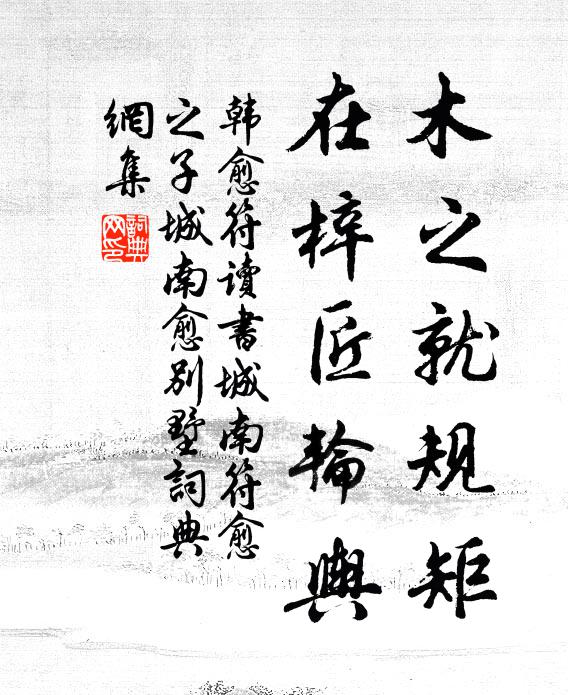 木之就規矩
在梓匠輪輿
韩愈符读書城南符愈
之子城南愈别墅詞典
網集
詞典网印